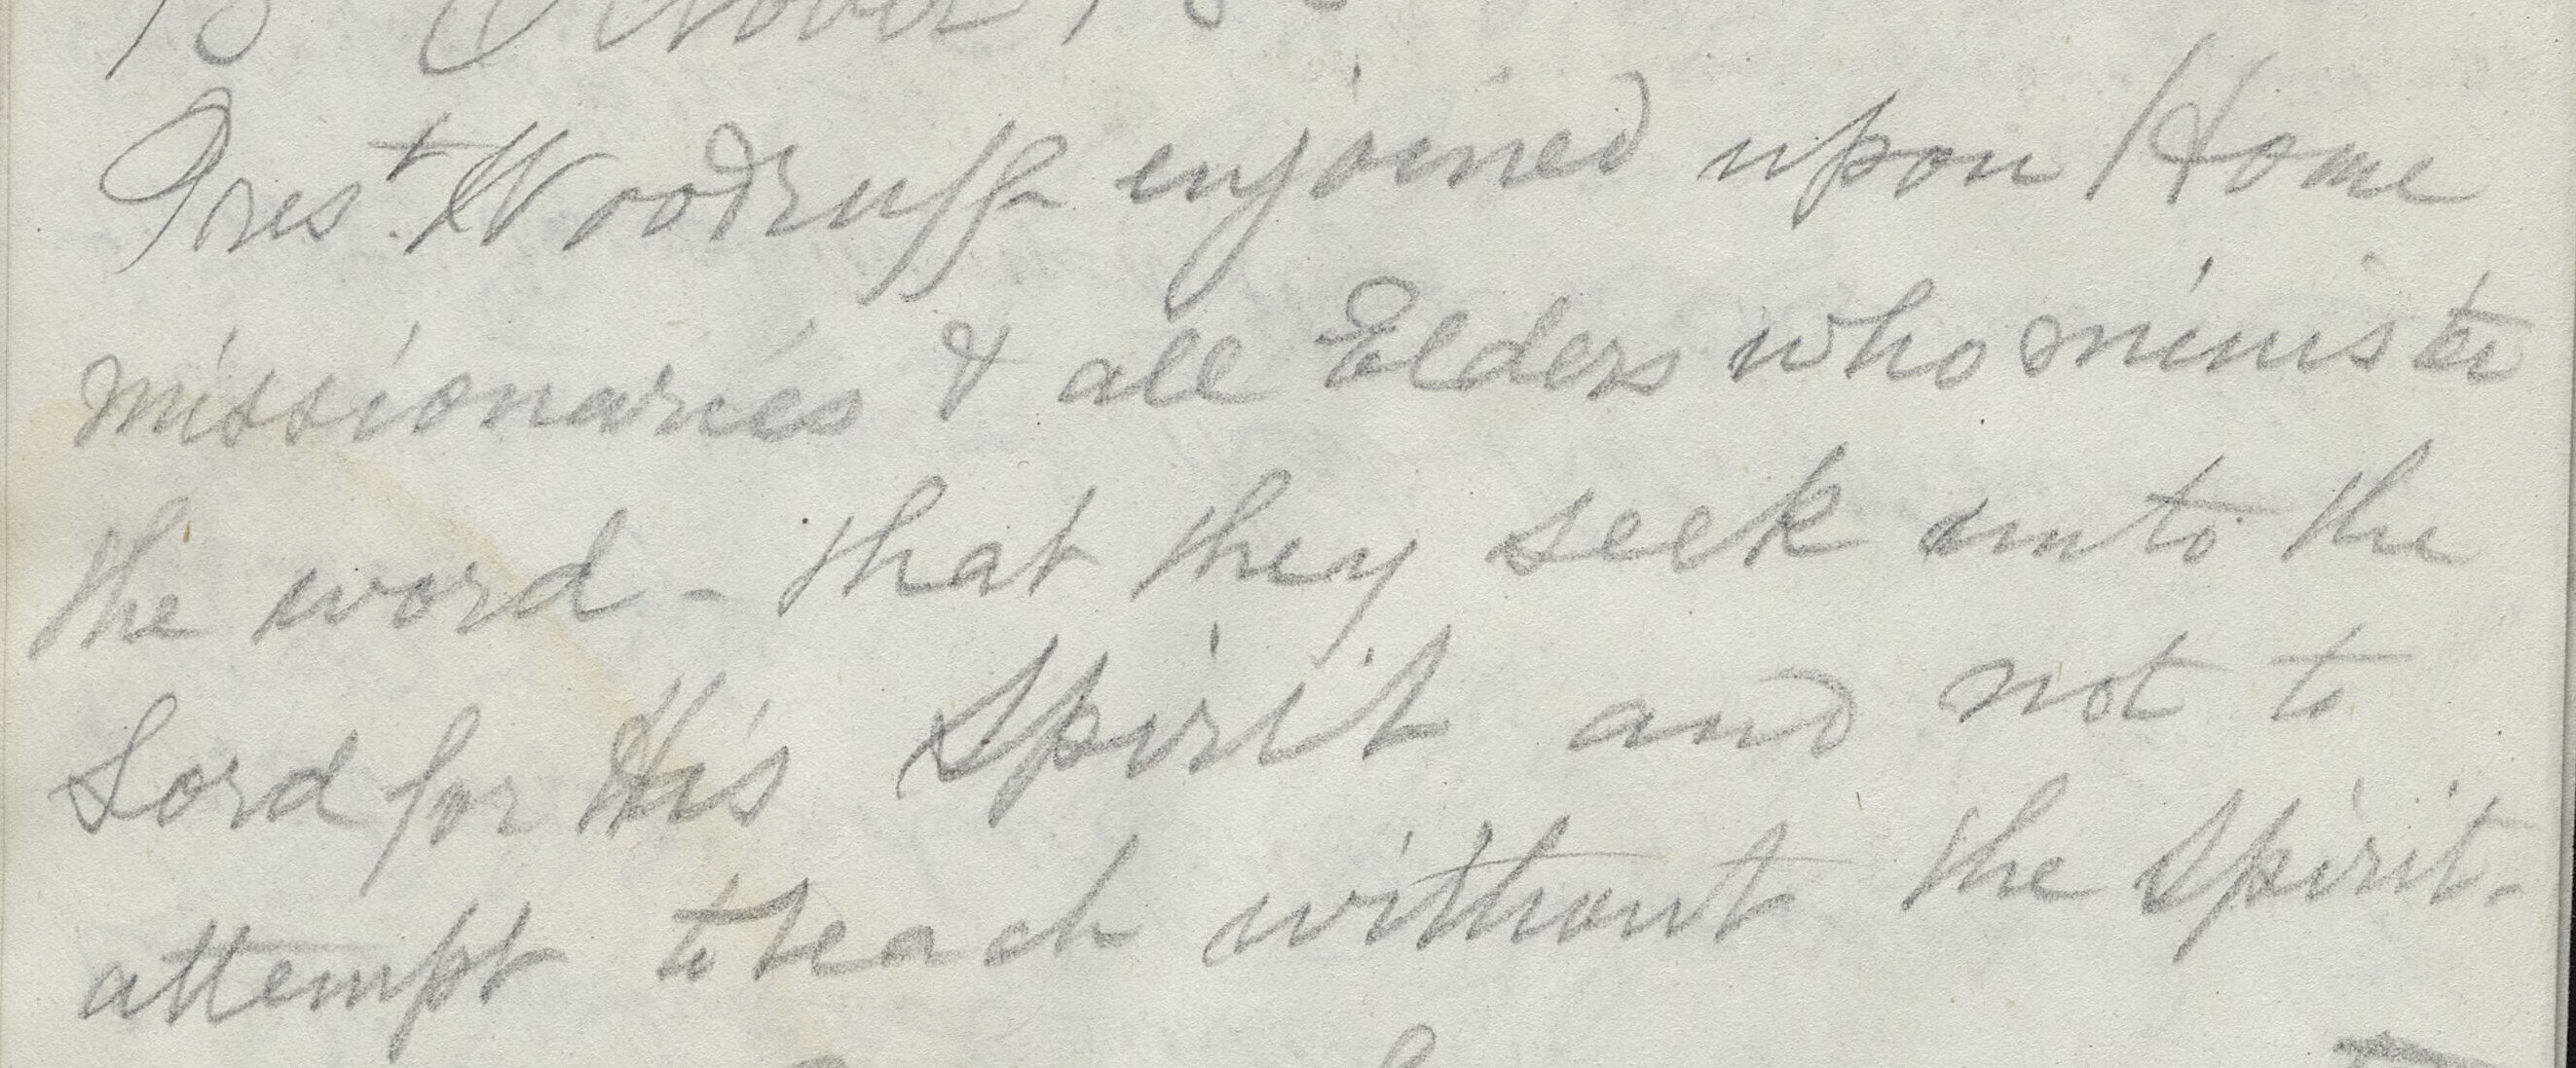 October
Pres.t Woodruff enjoined upon Home
missionaries & all Elders who minister
the word - that they seek unto the
Lord for His Spirit and not to
attempt to teach without the Spirit.